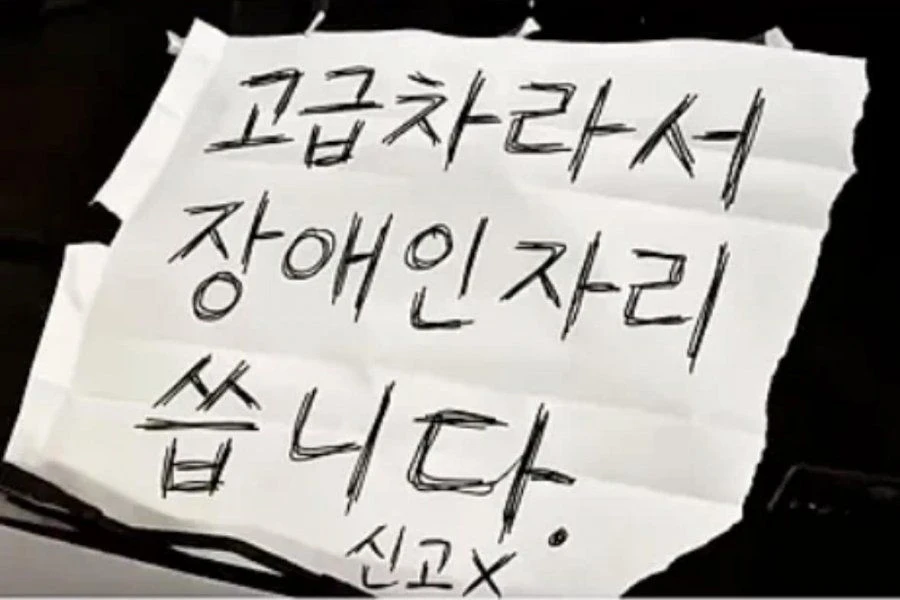 고급차라서
장애인자리
씁니다.
신고X